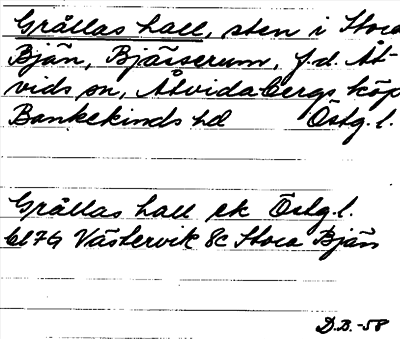 Grållas hall, sten i Stora
Bjän, Bjässerum, f.d. Åt-
vids sn, Åtvidabergs köp
Bankekinds hd Östg.l.
Grållas hall ek Östg.l.
bl7G Västervik 8c Stora Bjän
D.B.-58